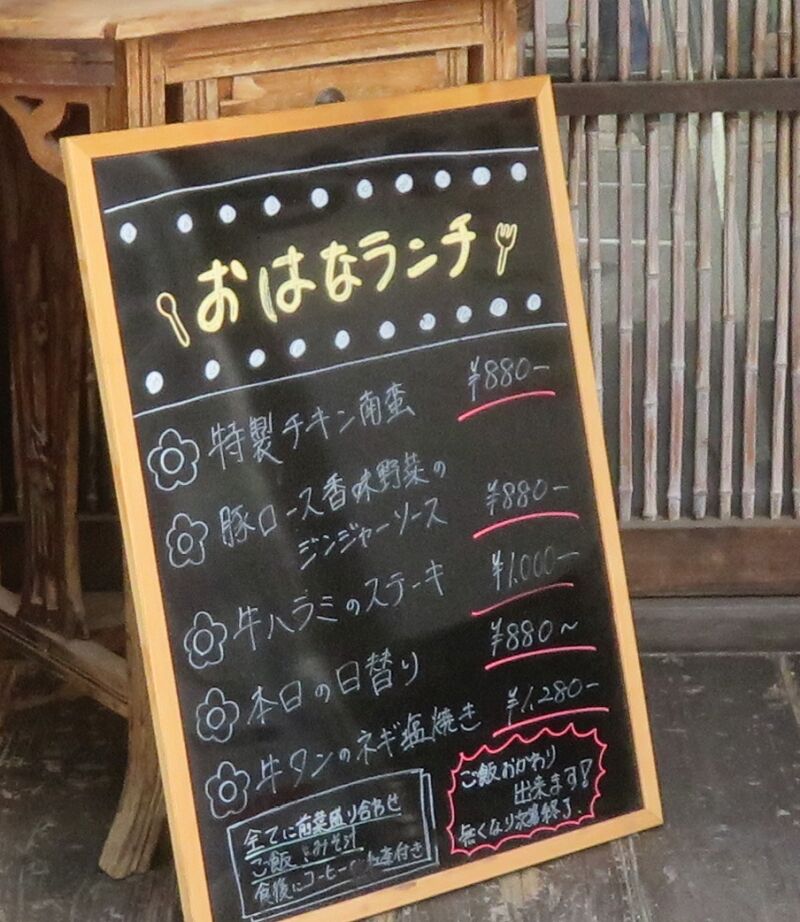 おはなランチ
特製チキン南蛮 ¥880-
豚ロース香味野菜の
ジンジャーソース ¥880-
牛ハラミのステーキ ¥1,000-
本日の日替り ¥880~
牛タンのネギ塩焼き ¥1,280-
全てに前菜盛り合わせ
ご飯 みそ汁
食後にコーヒー 付き
ご飯おかわり
出来ます!
無くなり次第終了.